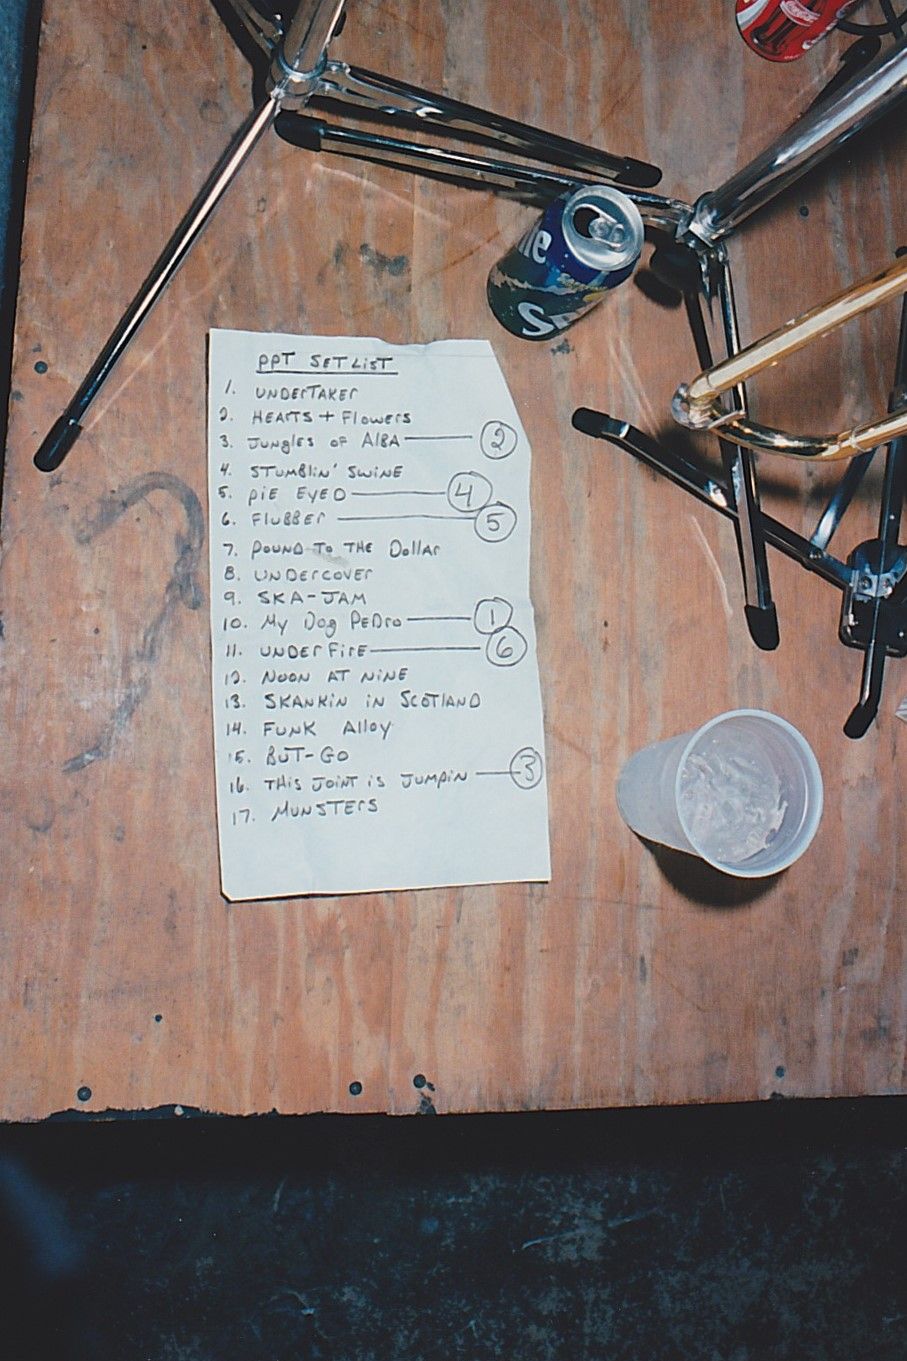 Coca-Cola
PPT SET LIST
1. UNDERTAKER
2. HEARTS + FLOWERS
3. JUNGLES OF ALBA 2
4. STUMBLIN' SWINE
5. PIE EYED 4
6. FLUBBER 5
7. POUND TO THE DOLLAR
8. UNDERCOVER
9. SKA-JAM
10. MY DOG PEDRO 1
11. UNDER FIRE 6
12. NOON AT NINE
13. SKANKIN IN SCOTLAND
14. FUNK ALLOY
15. BUT-GO
16. THIS JOINT IS JUMPIN 3
17. MUNSTERS